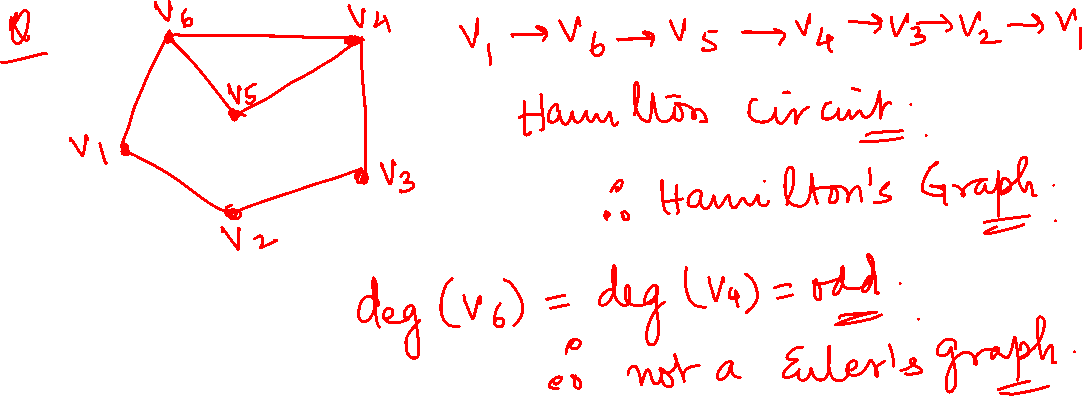 Q
V6 V4
V5
V1
V3
V2
V1 → V6 → V5 → V4 → V3 → V2 → V1
Hamilton circuit.
∴ Hamilton's Graph.
deg (V6) = deg (V4) = odd.
∴ not a Euler's graph.